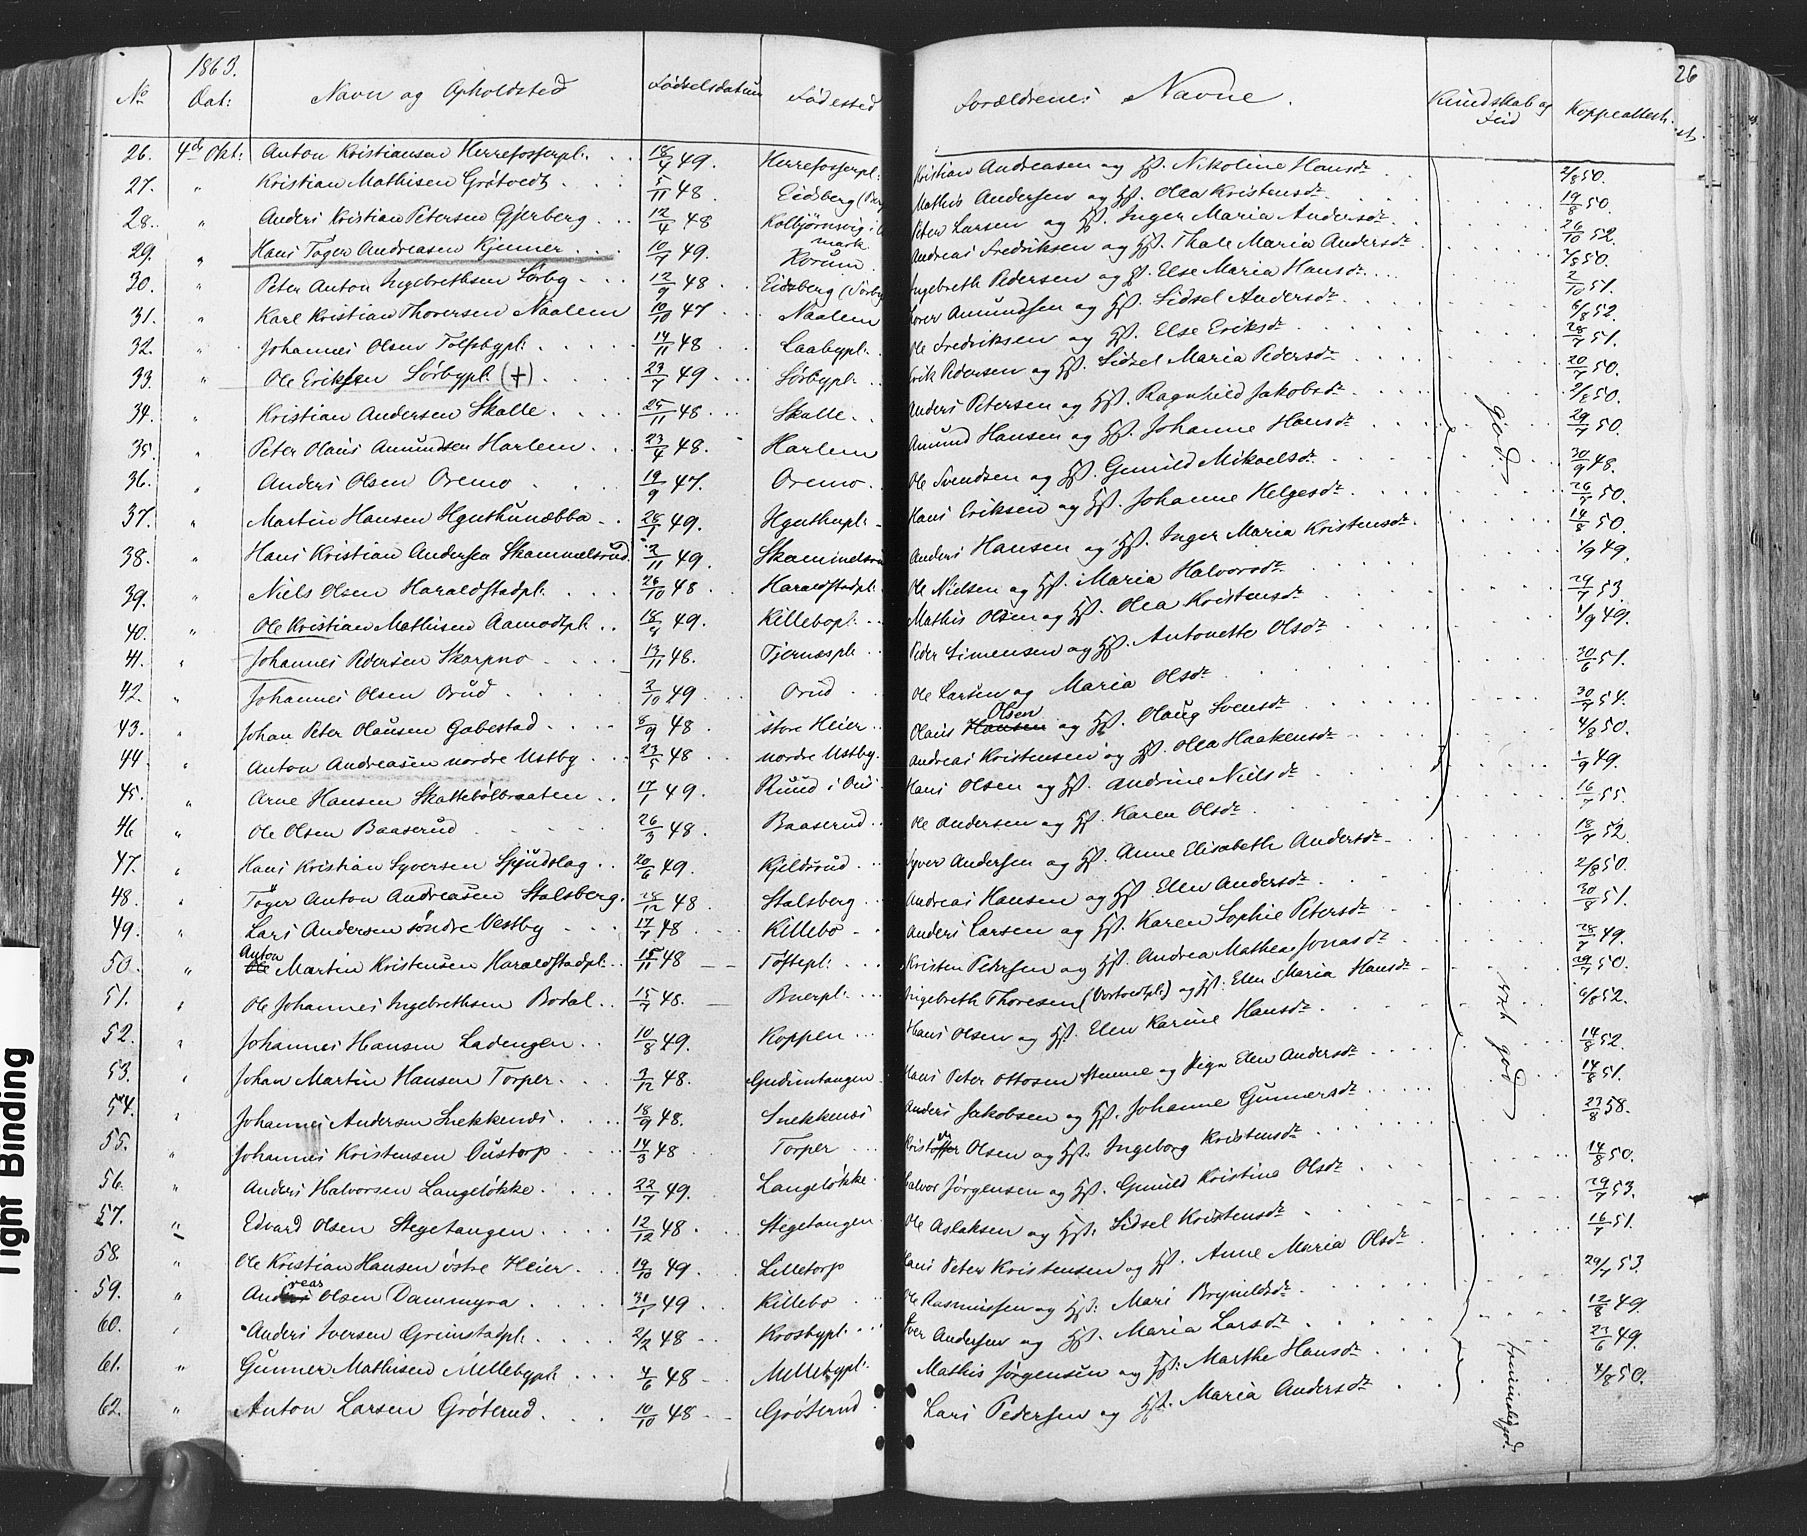 1863. 26
No Dat: Navn og Opholdsted Fødselsdatum Fødested Forældrenes Navne. Kundskab og Flid Koppeattest.
26. 4de Okt: Anton Kristiansen Herrefosserpl: 18/4 49. Herrefosserpl: Kristian Andreasen og Hst. Nikoline Hansdr 2/8 50.
27. " Kristian Mathisen Grötvedt 5/11 48 Eidsberg Mathis Andersen og Hst. Olea Kristensdr 19/8 50.
28. " Anders Kristian Petersen Gjerberg 12/4 48 Kolbjørnsvig i mark Peter Larsen og Hst. Inger Maria Andersdr 26/10 52.
29. " Hans Töger Andreasen Kjenner 10/7 49. Korum. Andreas Fredriksen og Hst. Thale Maria Andersdr 2/8 50.
30. " Peter Anton Ingebrethsen Sørby 12/9 48 Eidsberg (Sørby Ingebreth Pedersen og Hst. Else Maria Hansdr 2/10 51.
31. " Karl Kristian Thoresen Naalem 10/10 47 Naalem Torer Amundsen og Hst. Sidsel Andersdr 6/8 52.
32. " Johannes Olsen Tolfsbypl: 14/11 48 Laabypl: Ole Fredriksen og Hst. Else Eriksdr 28/7 51.
33. " Ole Eriksen Sörbypl. (+) 23/7 49 Sörbypl: Erik Pedersen og Hst. Sidsel Maria Pedersdr 20/7 50.
34. " Kristian Andersen Skalle 25/11 48 Skalle Anders Petersen og Hst. Ragnhild Jakobsdr 2/8 50.
35. " Peter Olaus Amundsen Harlem 23/4 48. Harlem Amund Hansen og Hst. Johanne Hansdr god. 29/7 50.
36. " Anders Olsen Oremo 19/9 47. Oremo Ole Svendsen og Hst. Gunild Mikaelsdr 30/9 48.
37. " Martin Hansen Hguthunæbba 28/1 49. Hguthupl: Hans Eriksen og Hst. Johanne Helgesdr 26/7 50.
38. " Hans Kristian Andersen Skammelsrud 2/11 49. Skammelsrud Anders Hansen og Hst. Inger Maria Kristensdr 14/8 50.
39. " Niels Olsen Haraldstadpl: 26/10 48 Haraldstadpl: Ole Nielsen og Hst. Maria Halvorsdr 1/9 49.
40. " Ole Kristian Mathisen Aamodtpl: 18/8 49. Killebopl: Mathis Olsen og Hst. Olea Kristensdr 29/7 53.
41. " Johannes Pedersen Skarpno 13/11 48. Tjernæspl: Peder Simensen og Hst. Antonette Olsdr 1/9 49.
42. " Johannes Olsen Orud 2/10 49 Orud Ole Larsen og Maria Olsdr 30/6 51.
43. " Johan Peter Olausen Gabestad 8/9 48 store Heier Olaus Hansen Olsen og Hst. Olaug Svensdr 30/7 54.
44 " Anton Andreasen nordre Ustby 23/5 48 nordre Ustby Andreas Kristensen og Hst. Olea Haakensdr 4/8 50.
45. " Arne Hansen Skattebölbraaten 17/1 49. Ruud i Hans Olsen og Hst. Andrine Nielsdr 1/9 49.
46 " Ole Olsen Baaserud 26/3 48. Baaserud Ole Andersen og Hst. Karen Olsdr 16/7 55.
47. " Hans Kristian Syversen Spjudslag 20/6 49. Kjeldsrud Syver Andersen og Hst. Anne Elisabeth Andersdr 18/7 52
48. " Töger Anton Andreasen Stalsberg. 28/12 48 Stalsberg Andreas Hansen og Hst. Elen Andersdr 2/8 50.
49. " Lars Andersen söndre Vestby 17/7 48 Killebo Anders Larsen og Hst. Karen Sophie Petersdr 30/8 51.
50. " Ole Anton Martin Kristensen Haraldstadpl: 15/11 48 Toftepl. Kristen Pedersen og Hst. Andrea Mathea Jonasdr 28/7 49.
51. " Ole Johannes Ingebrethsen Bodal 15/7 48. Buerpl: Ingebreth Thoresen (Vortvedtpl:) og Hst. Elen Maria Hansdr 29/7 50.
52. " Johannes Hansen Ladengen 10/8 49. Koppen Hans Olsen og Hst. Elen Karine Hansdr mt god 6/8 52.
53. " Johan Martin Hansen Torper 2/12 48. Gudimtangen Hans Peter Ottosen Stumne og Pige Elen Andersdr 14/8 52.
54. " Johannes Andersen Snekkenæs 18/9 48. Snekkenæs Anders Jakobsen og Hst. Johanne Gunnersdr 14/8 51.
55. " Johannes Kristensen Oustorp 14/3 48 Torper Kristoffer Olsen og Hst. Ingeborg Kristensdr 23/8 58.
56. " Anders Halvorsen Langeløkke 22/7 49. Langeløkke Halvor Jørgensen og Hst. Gunild Kristine Olsdr 14/8 50.
57. " Edvard Olsen Stegetangen 12/12 48 Stegetangen Ole Aslaksen og Hst. Sidsel Kristensdr 29/7 53.
58. " Ole Kristian Hansen østre Heier 19/10 49 Lilletorp Hans Peter Kristensen og Hst. Anne Maria Olsdr 16/7 51.
59. " Andreas Olsen Dammyra 31/1 49 Killebo Ole Rasmussen og Hst: Mari Brynildsdr 29/7 53.
60. " Anders Iversen Grimstadpl: 2/2 48 Krosbypl: Iver Andersen og Hst. Maria Larsdr 12/8 49.
61. " Gunner Mathisen Millebypl: 4/6 48 Millebypl: Mathis Jørgensen og Hst: Marthe Hansdr temmelig god. 21/6 49.
62. " Anton Larsen Gröterud. 10/10 48 Gröterud Lars Pedersen og Hst. Maria Andersdr 4/8 50.
Tight Binding